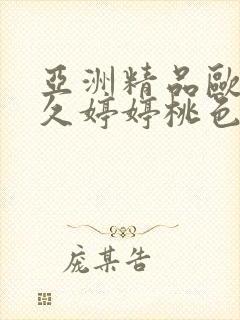 亞洲精品歐
久婷婷桃色
庞某告